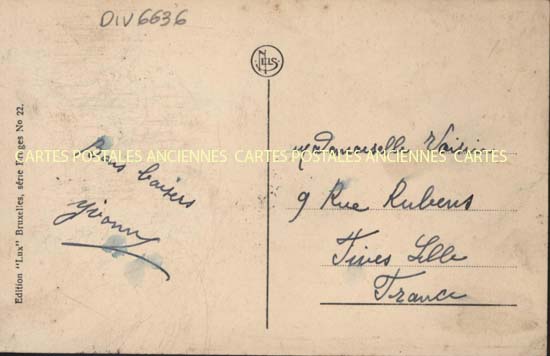 DIV6636
NELS
Edition "Lux" Bruxelles, série Anges No 22.
Bons baisers
Yvonne
Mademoiselle Voisin
9 Rue Rubens
Fives Lille
France
CARTES POSTALES ANCIENNES CARTES POSTALES ANCIENNES CARTES POSTALES ANCIENNES